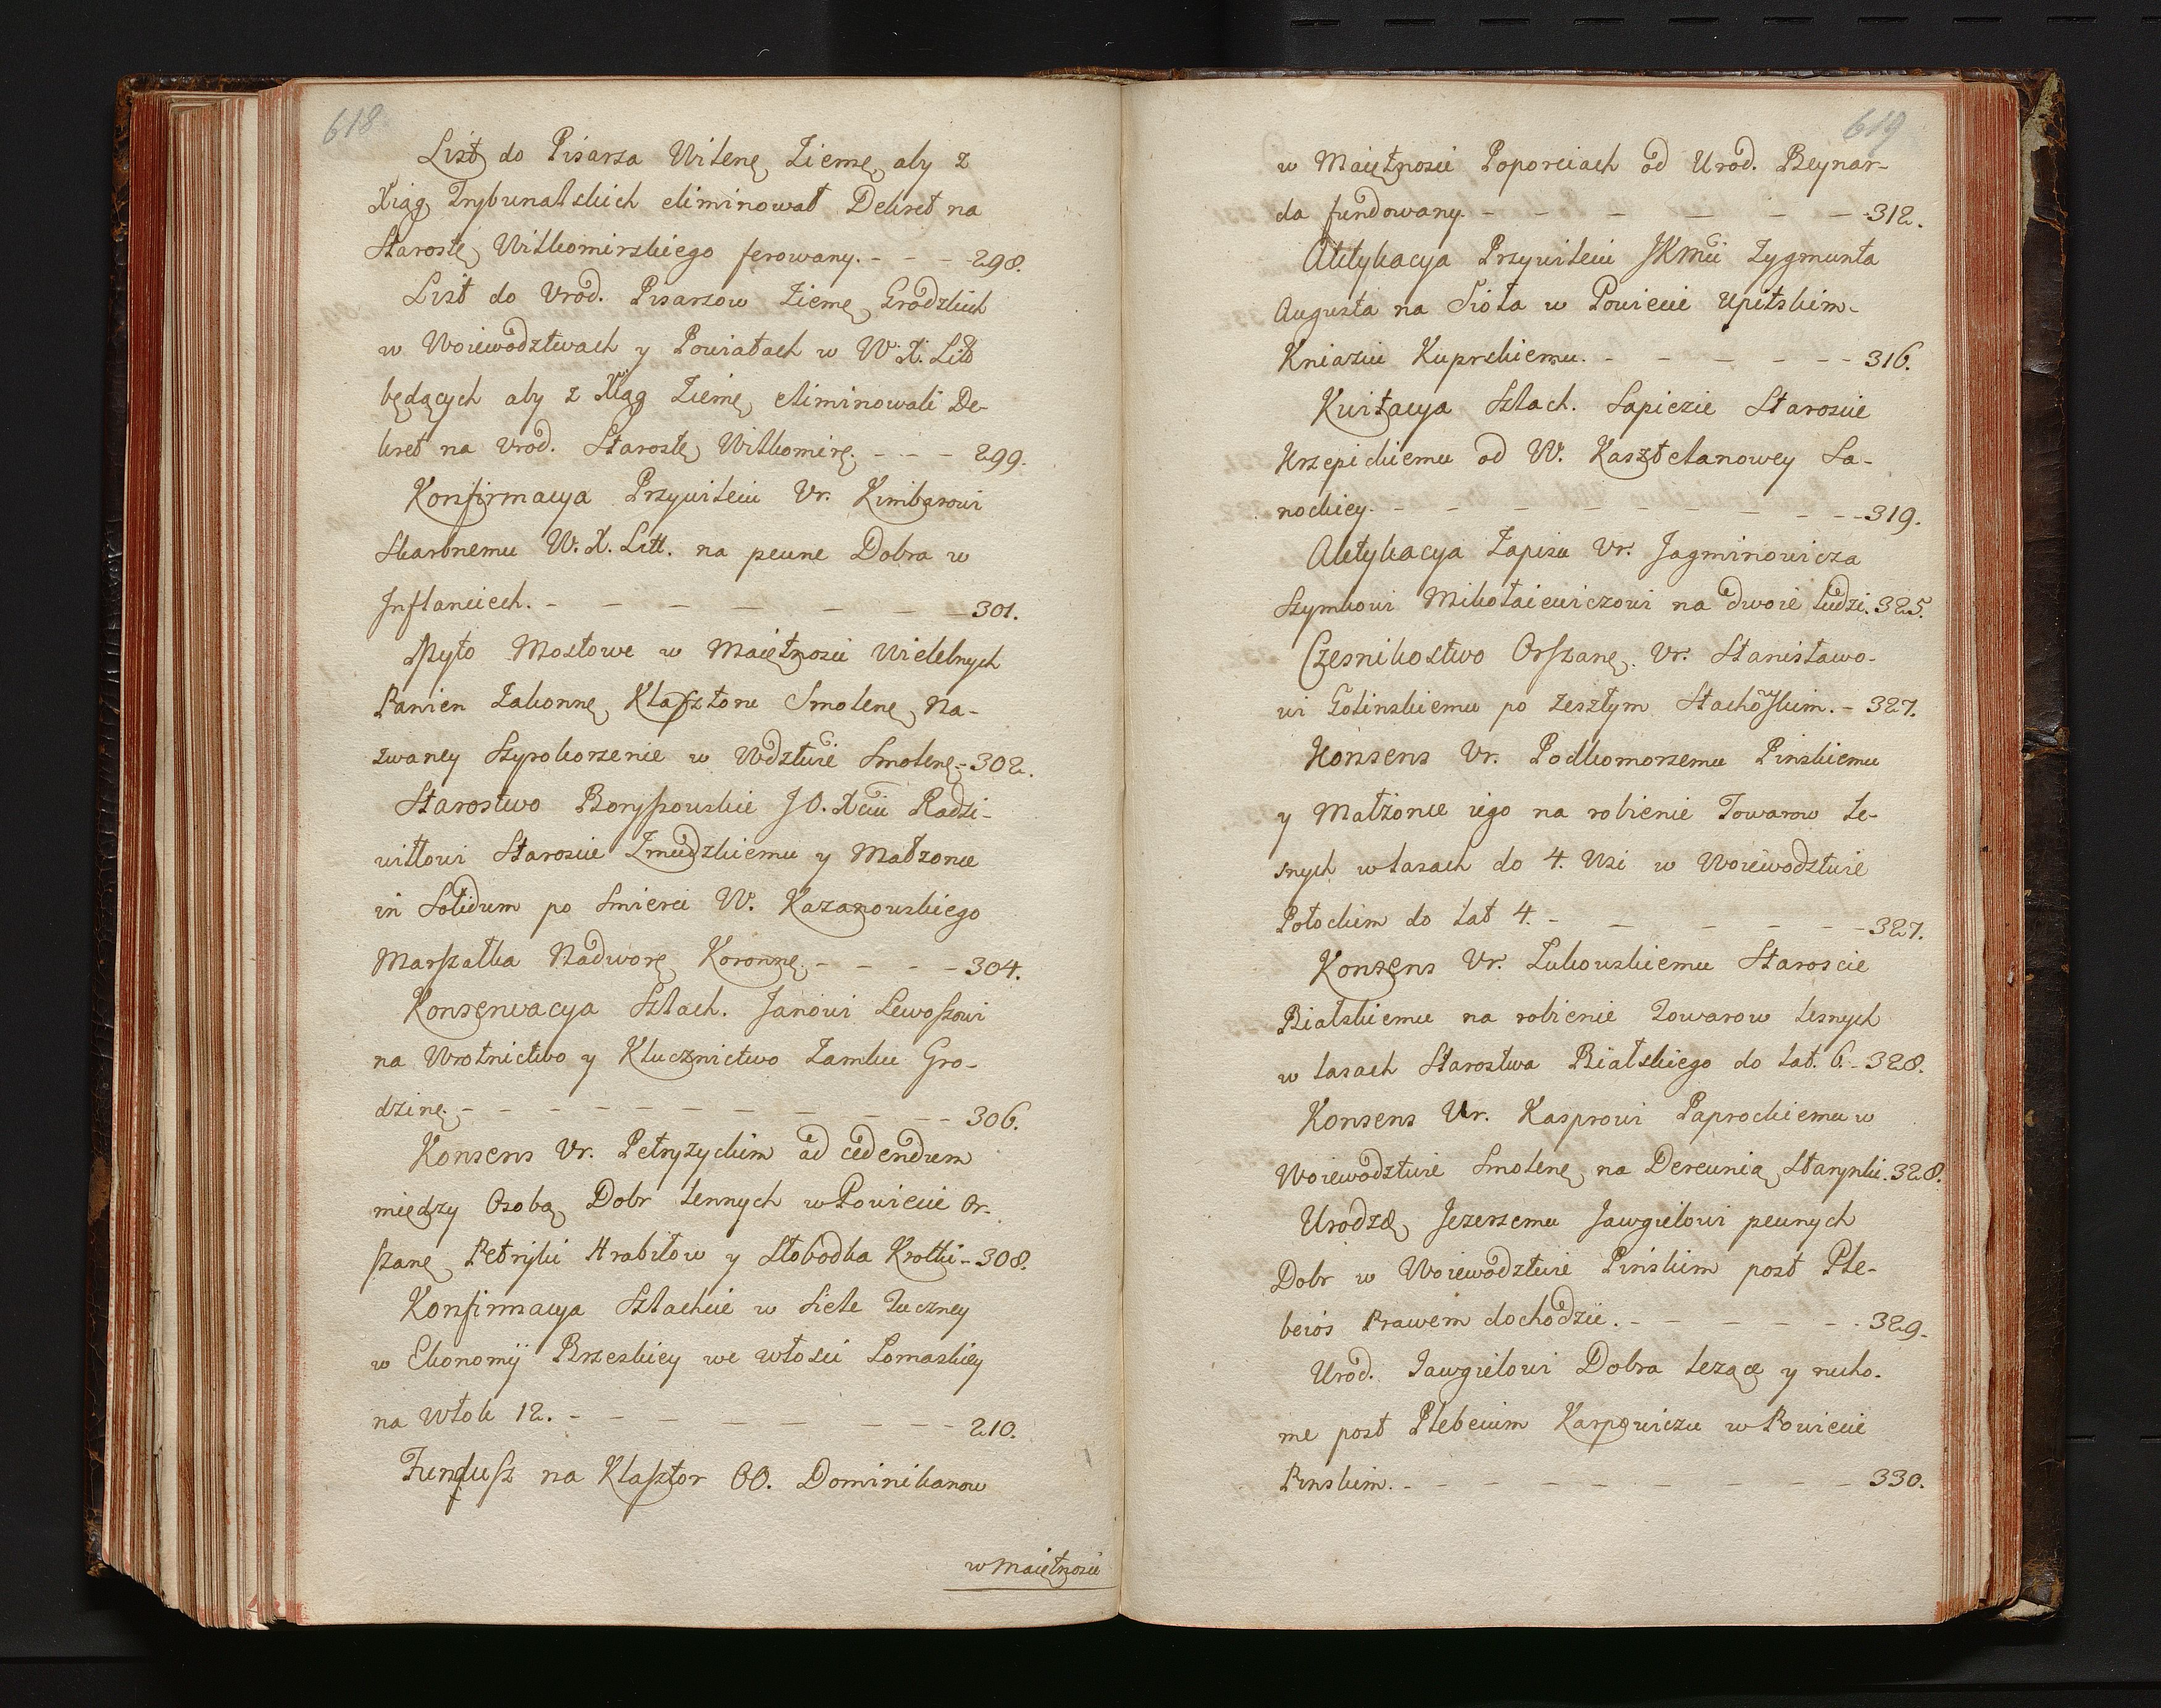 618
List do Pisarza Wilenę Ziemę, aby z
Xiąg Trybunalskich eliminował Dekret na
Starostę Wiłkomirskiego ferowany. - - - 298.
List do Urod. Pisarzow Ziemę, Grodzkich
w Woiewodztwach y Powiatach w W. X. Litt
będących aby z Xiąg Ziemę, eliminowali De-
kret na Urod. Starostę Wiłkomirę. - - - 299.
Konfirmacya Przywileiu Ur. Kimbarowi
Skarbnemu W. X. Litt. na pewne Dobra w
Inflanciech. - - - - - - - 301.
Myto Mostowe w Maiętnosci Wielebnych
Panien Zakonnę, Klasztoru Smolenę, Na-
zwaney Szyrokorzenie w Wdztwie Smolenę. - 302.
Starostwo Boryssowskie J O. Xciu Radzi-
wiłłowi Staroscie Zmudzkiemu y Małzonce
in Solidum po Smierci W. Kazanowskiego
Marszałka Nadworę Koronnę. - - - - 304.
Konserwacya Szlach. Janowi Lewoszowi
na Wrotnictwo y Klucznictwo Zamku Gro-
dzinę. - - - - - - - - - - 306.
Konsens Ur. Petryzyckim ad cedendum
między Osobą Dobr Lennych w Powiecie Or-
szanę Petryki Hrabitow y Słobodka Krotki - 308.
Konfirmacya Szlachcie w Siele Tuczney
w Ekonomij Brzeskiey we włosci Łomaskiey
na włok 12. - - - - - - - - 210.
Fundusz na Klasztor OO. Dominikanow
w Maiętnosci
619
w Maiętnosci Poporciach od Urod. Reynar-
da fundowany. - - - - - - - 312.
Aktykacya Przywileiu JKMci Zygmunta
Augusta na Sioła w Powiecie Upitskim
Kniaziu Kuprskiemu. - - - - - - 316.
Kwitacya Szlach. Sapiezie Staroscie
Krzepickiemu od W. Kasztelanowey Sa-
nockiey. - - - - - - - - - - 319.
Aktykacya Zapisu Ur. Jagminowicza
Szymkowi Mikołaiewiczowi na dwoie ludzi. 325.
Czesnikostwo Orszanę. Ur. Stanisławo-
wi Golinskiemu po zeszłym Stachoskim. - 327.
Konsens Ur. Podkomorzemu Pinskiemu
y Małżonce iego na robienie Towarow le-
snych w lasach do 4. Wsi w Woiewodztwie
Połockim do lat 4. - - - - - - 327.
Konsens Ur. Lukowskiemu Staroscie
Bialskiemu na robienie towarow lesnych
w lasach Starostwa Bialskiego do lat. 6. - 328.
Konsens Ur. Kasprowi Paprockiemu w
Woiewodztwie Smolenę, na Derewnią Starynki. 328.
Urodzę, Jezerzemu Jawgielowi pewnych
Dobr w Woiewodztwie Pinskim post Ple-
beios Prawem dochodzic. - - - - - - 329.
Urod. Jawgielowi Dobra lezące y rucho-
me post Plebeium Karpowiczu w Powiecie
Pinskim. - - - - - - - - - 330.